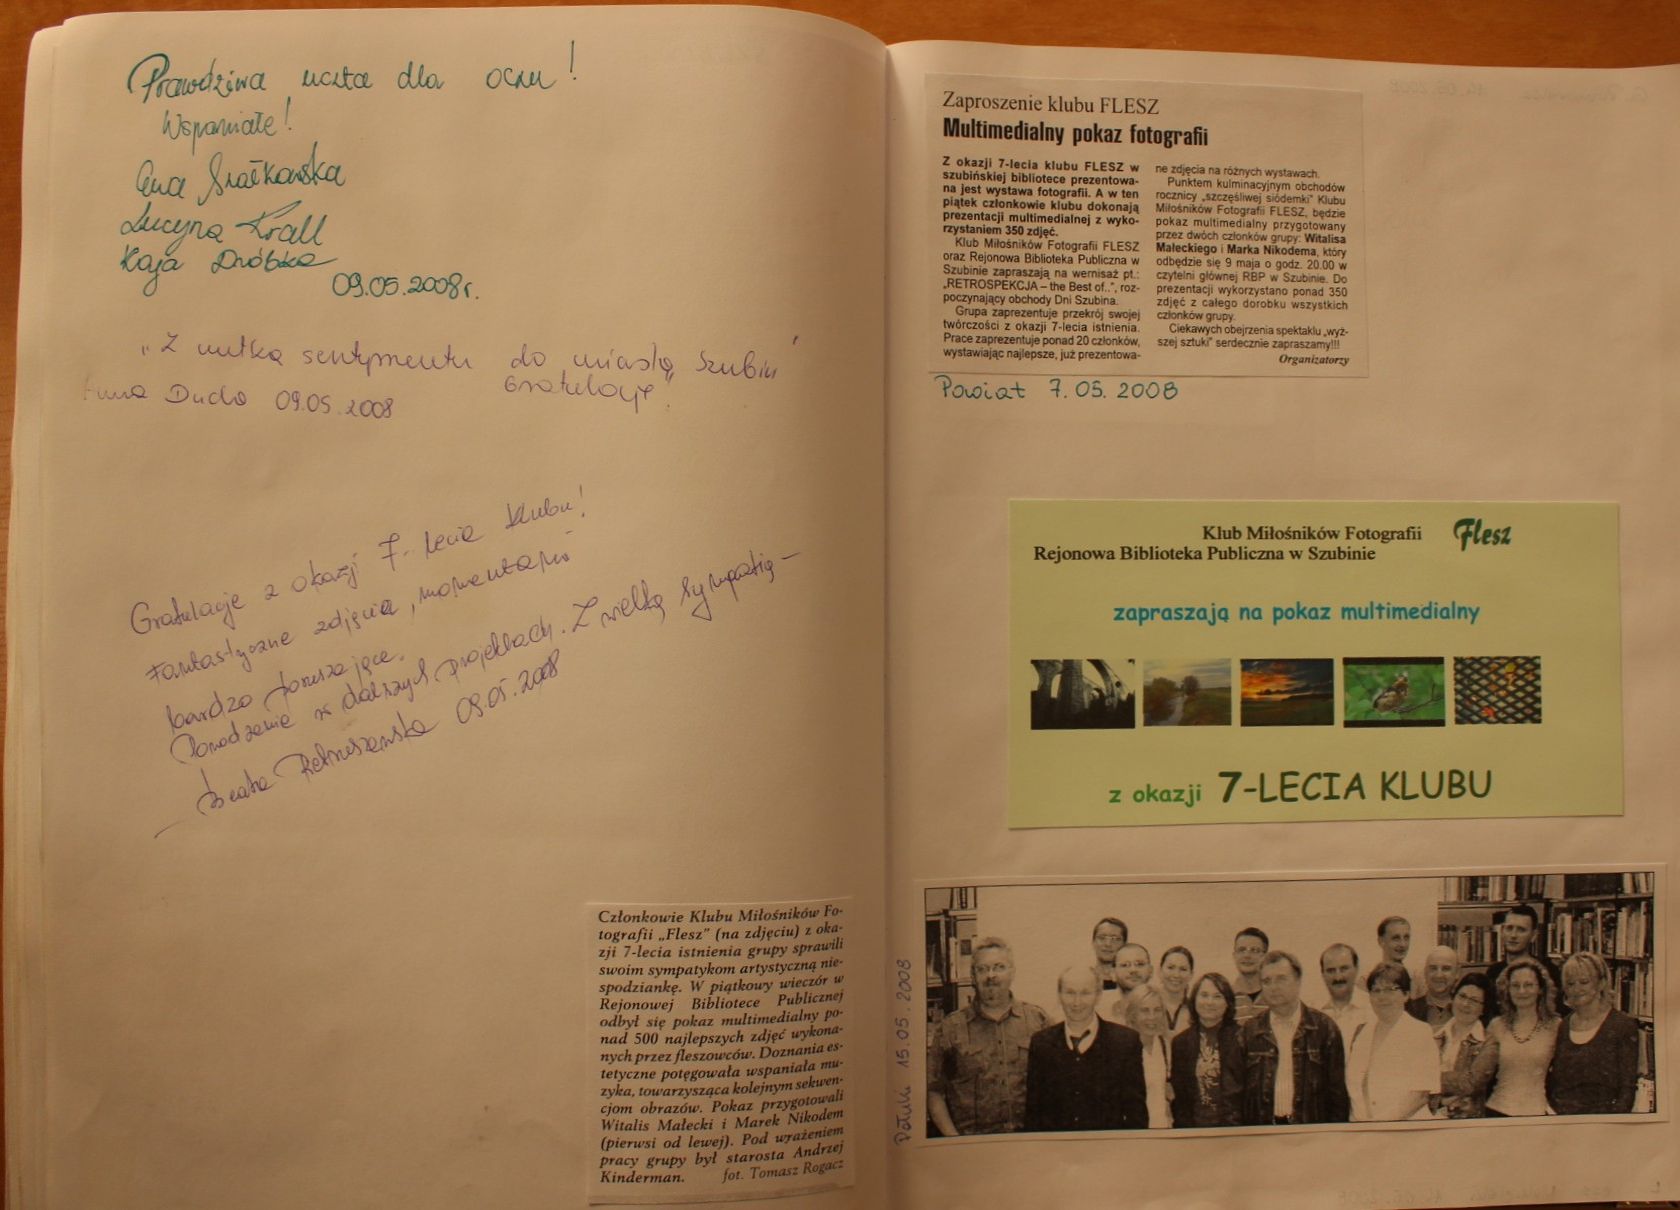 Prawdziwa uczta dla oczu!
Wspaniałe!
Ewa
Lucyna Krall
Kaja Dróbka
09.05.2008r.
„Z nutką sentymentu do miasta Szubin
Gratulacje"
Anna Ducha 09.05.2008
Gratulacje z okazji 7-lecia Klubu!
Fantastyczne zdjęcia, momentami
bardzo poruszające.
Powodzenia w dalszych projektach. Z wielką sympatią –
– Beata 09.05.2008
Członkowie Klubu Miłośników Fo-
tografii „Flesz” (na zdjęciu) z oka-
zji 7-lecia istnienia grupy sprawili
swoim sympatykom artystyczną nie-
spodziankę. W piątkowy wieczór w
Rejonowej Bibliotece Publicznej
odbył się pokaz multimedialny po-
nad 500 najlepszych zdjęć wykona-
nych przez fleszowców. Doznania es-
tetyczne potęgowała wspaniała mu-
zyka, towarzysząca kolejnym sekwen-
cjom obrazów. Pokaz przygotowali
Witalis Małecki i Marek Nikodem
(pierwsi od lewej). Pod wrażeniem
pracy grupy był starosta Andrzej
Kinderman. fot. Tomasz Rogacz
Zaproszenie klubu FLESZ
Multimedialny pokaz fotografii
Z okazji 7-lecia klubu FLESZ w
szubińskiej bibliotece prezentowa-
na jest wystawa fotografii. A w ten
piątek członkowie klubu dokonają
prezentacji multimedialnej z wyko-
rzystaniem 350 zdjęć.
Klub Miłośników Fotografii FLESZ
oraz Rejonowa Biblioteka Publiczna w
Szubinie zapraszają na wernisaż pt.:
„RETROSPEKCJA – the Best of..”, roz-
poczynający obchody Dni Szubina.
Grupa zaprezentuje przekrój swojej
twórczości z okazji 7-lecia istnienia.
Prace zaprezentuje ponad 20 członków,
wystawiając najlepsze, już prezentowa-
ne zdjęcia na różnych wystawach.
Punktem kulminacyjnym obchodów
rocznicy „szczęśliwej siódemki” Klubu
Miłośników Fotografii FLESZ, będzie
pokaz multimedialny przygotowany
przez dwóch członków grupy: Witalisa
Małeckiego i Marka Nikodema, który
odbędzie się 9 maja o godz. 20.00 w
czytelni głównej RBP w Szubinie. Do
prezentacji wykorzystano ponad 350
zdjęć z całego dorobku wszystkich
członków grupy.
Ciekawych obejrzenia spektaklu „wyż-
szej sztuki” serdecznie zapraszamy!!!
Organizatorzy
Powiat 7.05.2008
Klub Miłośników Fotografii Flesz
Rejonowa Biblioteka Publiczna w Szubinie
zapraszają na pokaz multimedialny
z okazji 7-LECIA KLUBU
Pałuki 15.05.2008